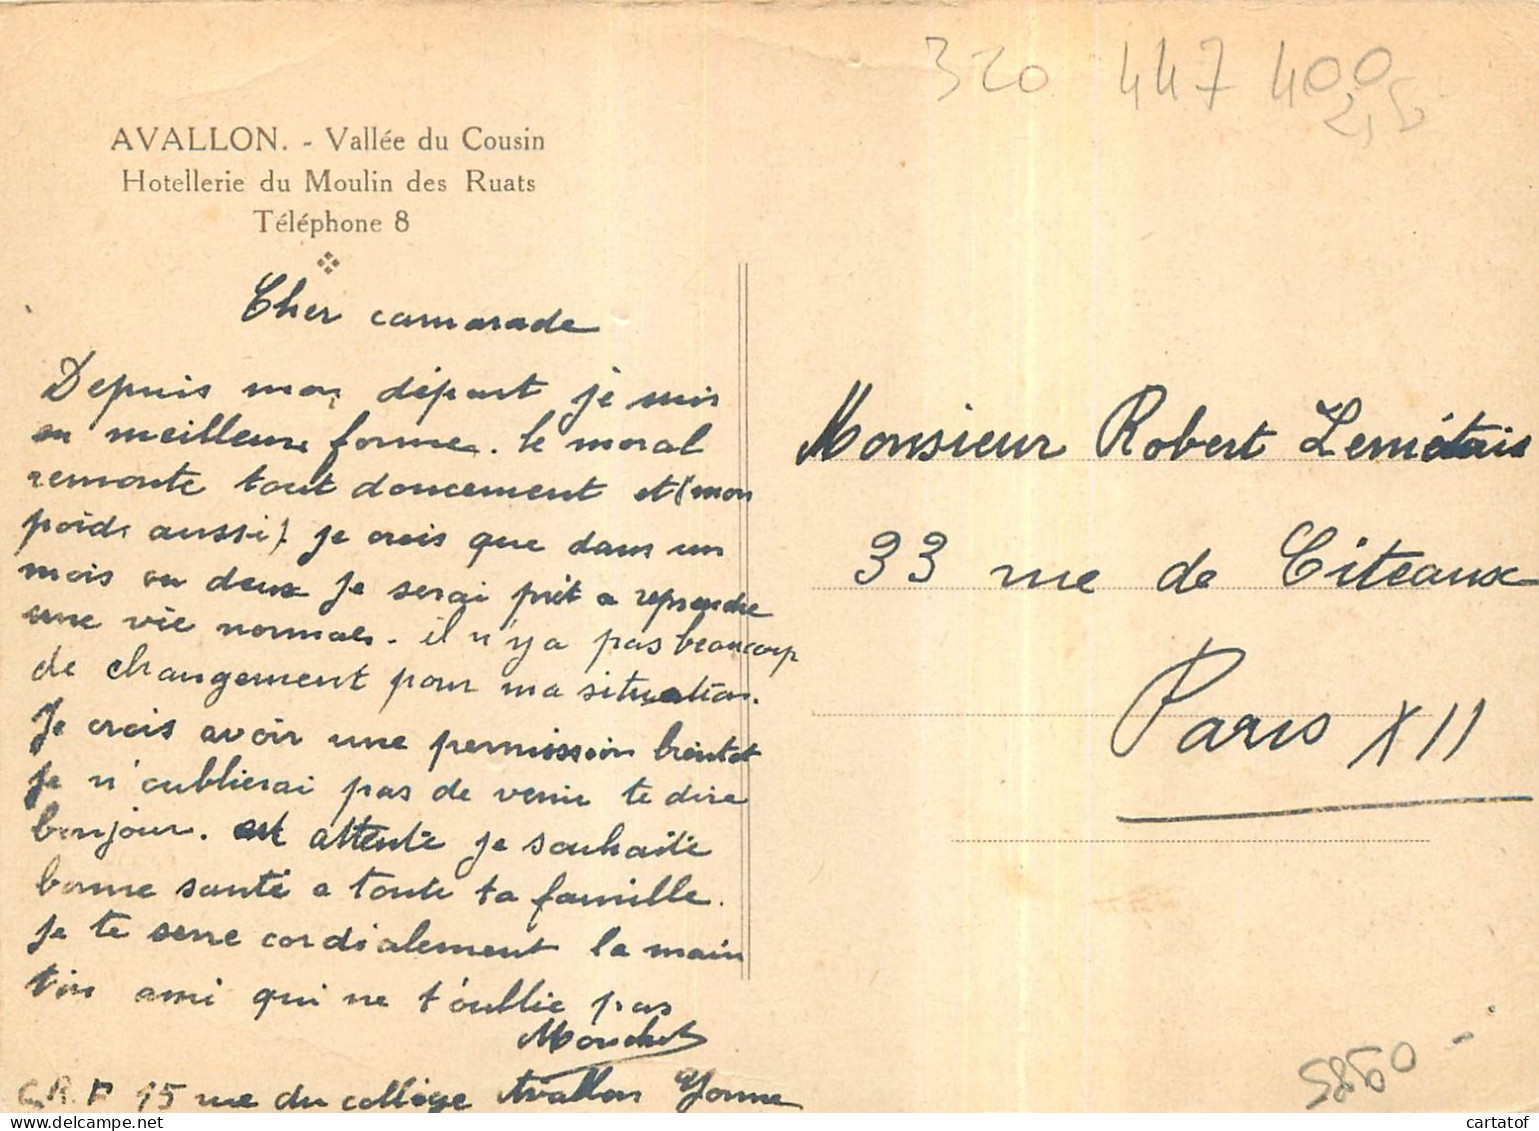 320 447 400
AVALLON. - Vallée du Cousin
Hotellerie du Moulin des Ruats
Téléphone 8
Cher camarade
Depuis mon départ je suis
en meilleure forme. le moral
remonte tout doucement et (mon
poids aussi). je crois que dans un
mois ou deux je serai prêt a reprendre
une vie normale. il n'y a pas beaucoup
de changement pour ma situation.
Je crois avoir une permission bientot
je n'oublierai pas de venir te dire
bonjour. attente je souhaite
bonne santé a toute ta famille.
je te serre cordialement la main
ton ami qui ne t'oublie pas
Mouchot
C.R.F 15 rue du collège Avallon Yonne
Monsieur Robert Lemétais
33 rue de Citeaux
Paris XII
5860
cartatof